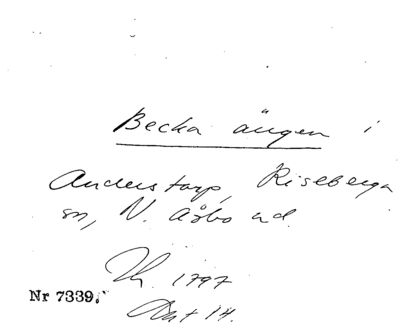 Becka ängen i
Anderstorp, Riseberga
sn, N. Åsbo hd.
Th. 1797
Nr 7339.
Akt 14.